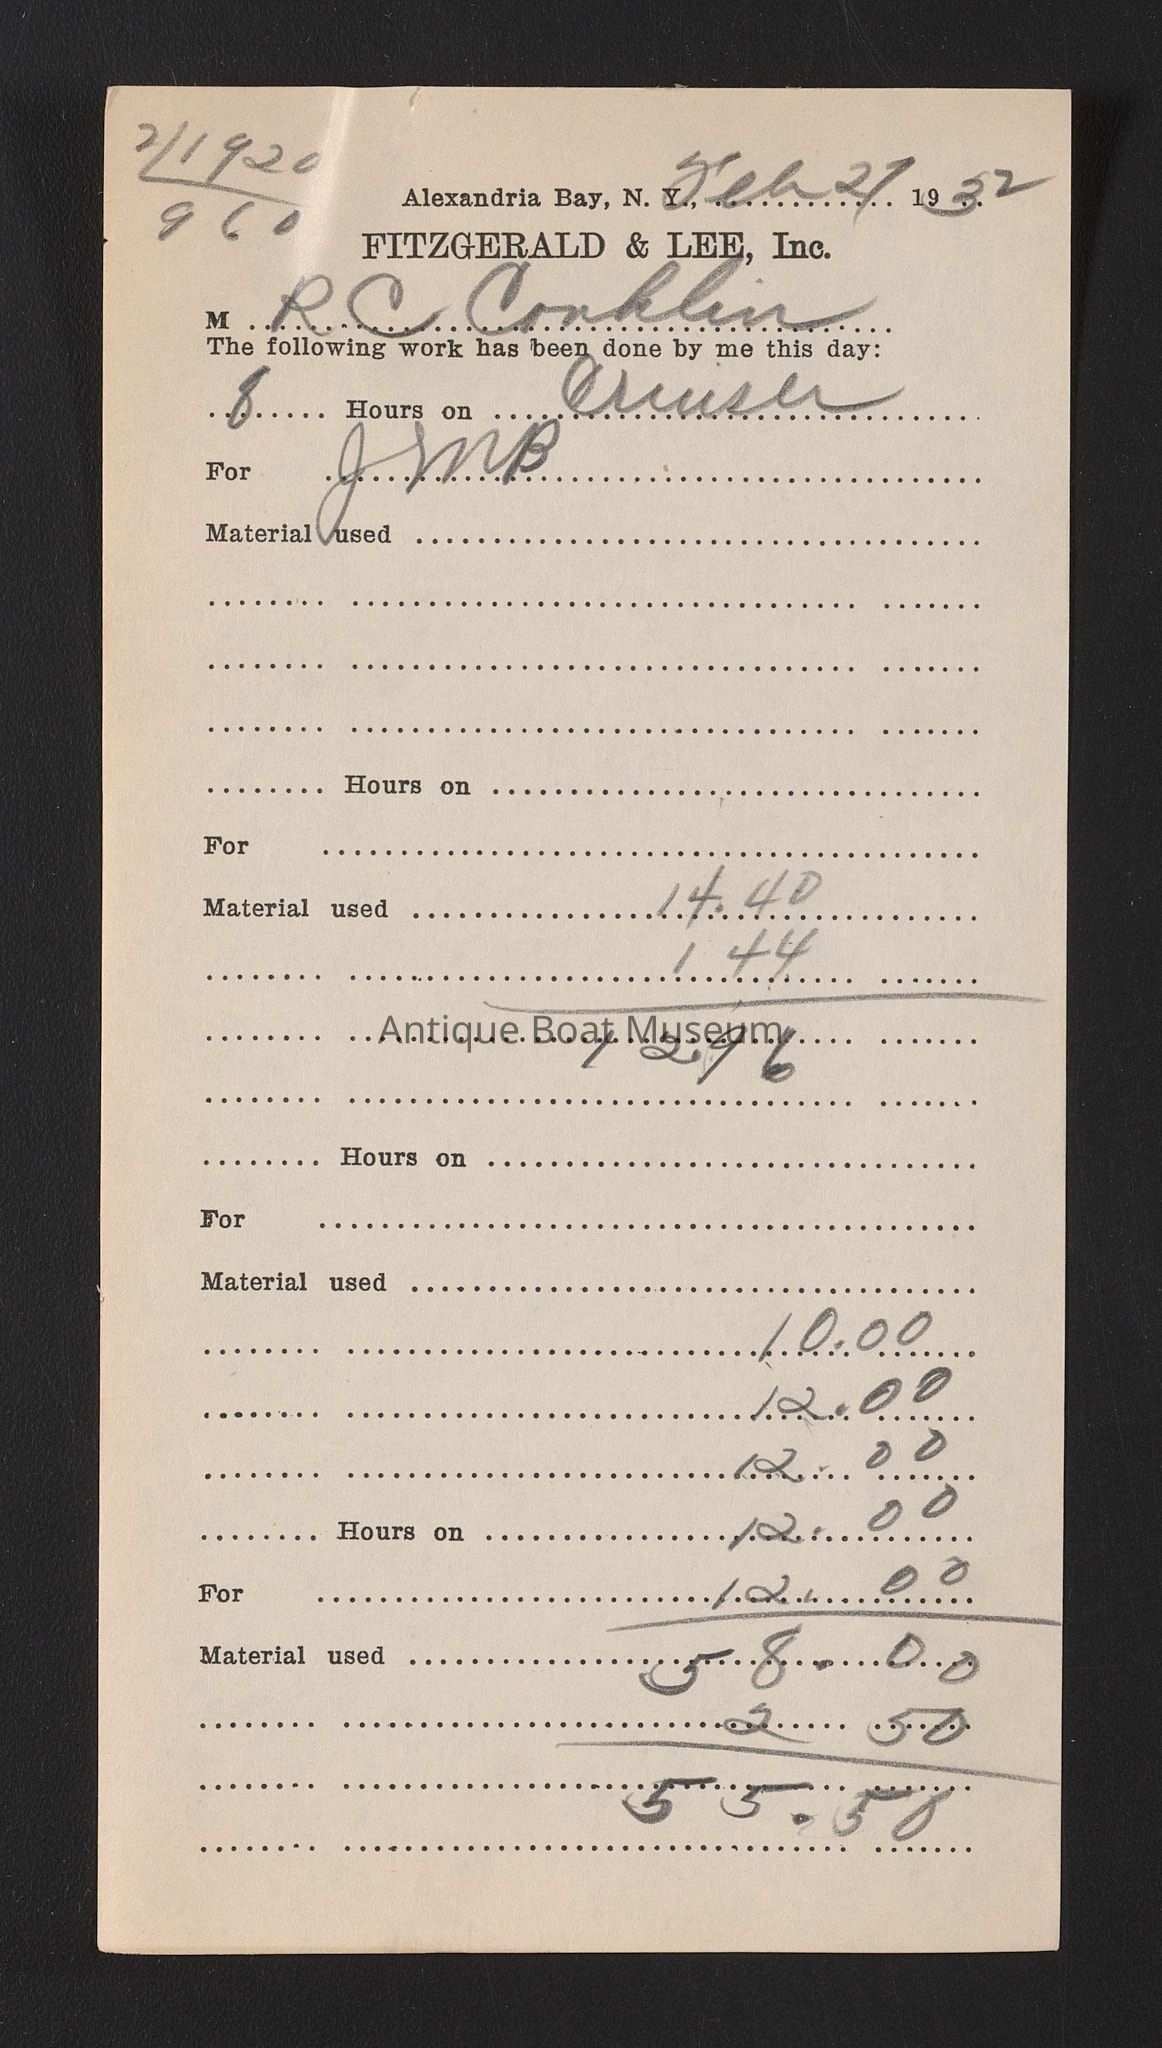 2/1920
960
Alexandria Bay, N. Y., Feb 27 1932
FITZGERALD & LEE, Inc.
M R C Conklin
The following work has been done by me this day:
8 Hours on Cruiser
For J M B
Material used
Hours on
For
Material used 14.40
1 44
Antique Boat Museum
12.96
Hours on
For
Material used
10.00
12.00
12.00
Hours on 12.00
For 12.00
Material used 58.00
2 50
55.50